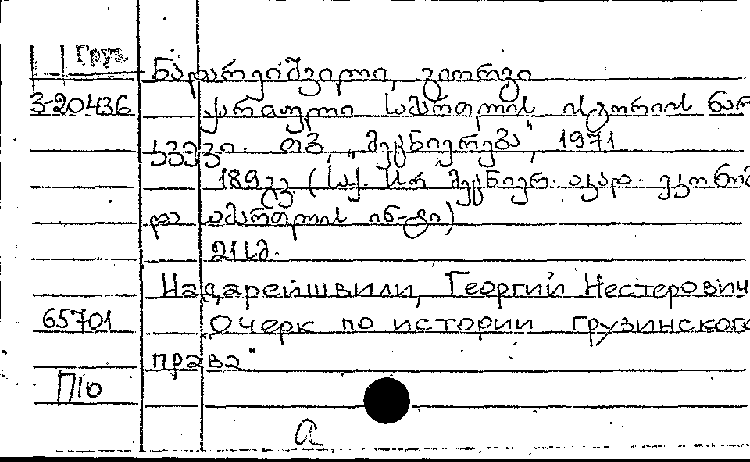 Груз
ნადარეიშვილი, გიორგი
3-20436 ქართული სამართლის ისტორიის ნარ
კვევი. თბ, „მეცნიერება", 1971
189 გვ (საქ. სსრ მეცნიერ. აკად. ეკონომ
და სამართლის ინ-ტი)
21 სმ.
Надарейшвили, Георгий Нестерович
65701 Очерк по истории грузинского
права"
П/о
а